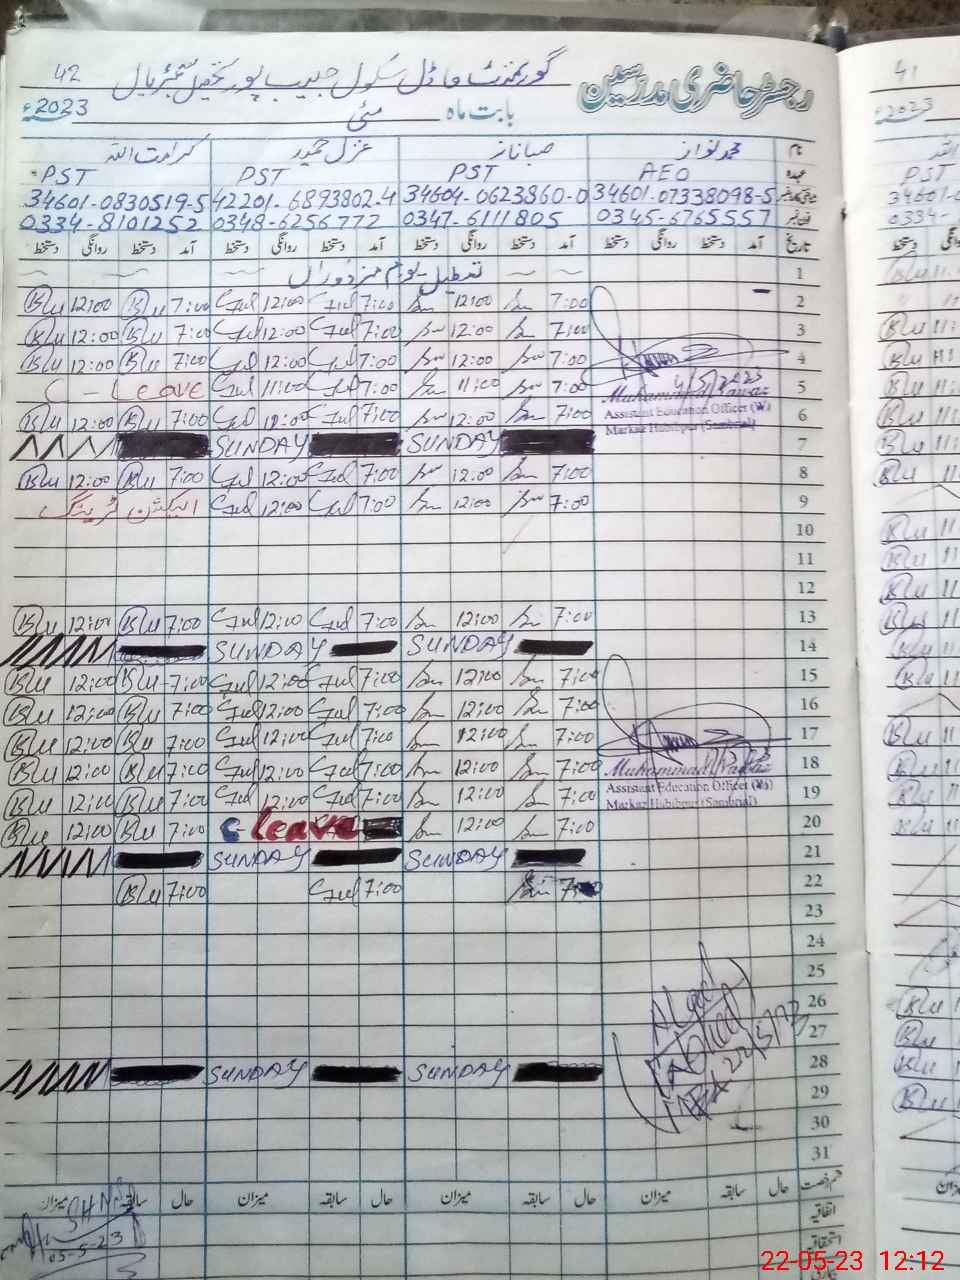 42
گورنمنٹ ماڈل سکول حبیب پور تحصیل سمبڑیال
رجسٹر حاضری مدرسین
2023ء مئی بابت ماہ
نام محمد نواز صبا ناز کرامت اللہ
عہدہ AEO PST PST PST
34601-0830519-5 42201-6893802-4 34604-0623860-0 34601-07338098-5
0334-8101252 0348-6256772 0347-6111805 0345-6765557
تاریخ آمد دستخط روانگی دستخط آمد دستخط روانگی دستخط آمد دستخط روانگی دستخط آمد دستخط روانگی دستخط
1 تعطیل یوم مزدوراں
12:00 7:00 12:00 7:00 12:00 7:00 2
12:00 7:00 12:00 7:00 12:00 7:00 3
12:00 7:00 12:00 7:00 12:00 7:00 4
C - Leave 11:00 7:00 11:00 7:00 4/5/2023 5
Muhammad Nawaz
12:00 7:00 12:00 7:00 12:00 7:00 Assistant Education Officer (W) 6
Markaz Habibpur (Sambrial)
SUNDAY SUNDAY 7
12:00 7:00 12:00 7:00 12:00 7:00 8
الیکشن ٹریننگ 12:00 7:00 12:00 7:00 9
10
11
12
12:00 7:00 12:00 7:00 12:00 7:00 13
SUNDAY SUNDAY 14
12:00 7:00 12:00 7:00 12:00 7:00 15
12:00 7:00 12:00 7:00 12:00 7:00 16
12:00 7:00 12:00 7:00 12:00 7:00 17
12:00 7:00 12:00 7:00 12:00 7:00 Muhammad Nawaz 18
12:00 7:00 12:00 7:00 12:00 7:00 Assistant Education Officer (W) 19
Markaz Habibpur (Sambrial)
12:00 7:00 C-Leave 12:00 7:00 20
SUNDAY SUNDAY 21
7:00 7:00 7:00 22
23
24
25
26
27
SUNDAY SUNDAY 28
29
30
31
قسم رخصت حال سابقہ میزان حال سابقہ میزان حال سابقہ میزان حال سابقہ میزان
اتفاقیہ
استحقاقیہ
05-5-23
41
2023ء
PST
34601-0
0334-
22-05-23 12:12